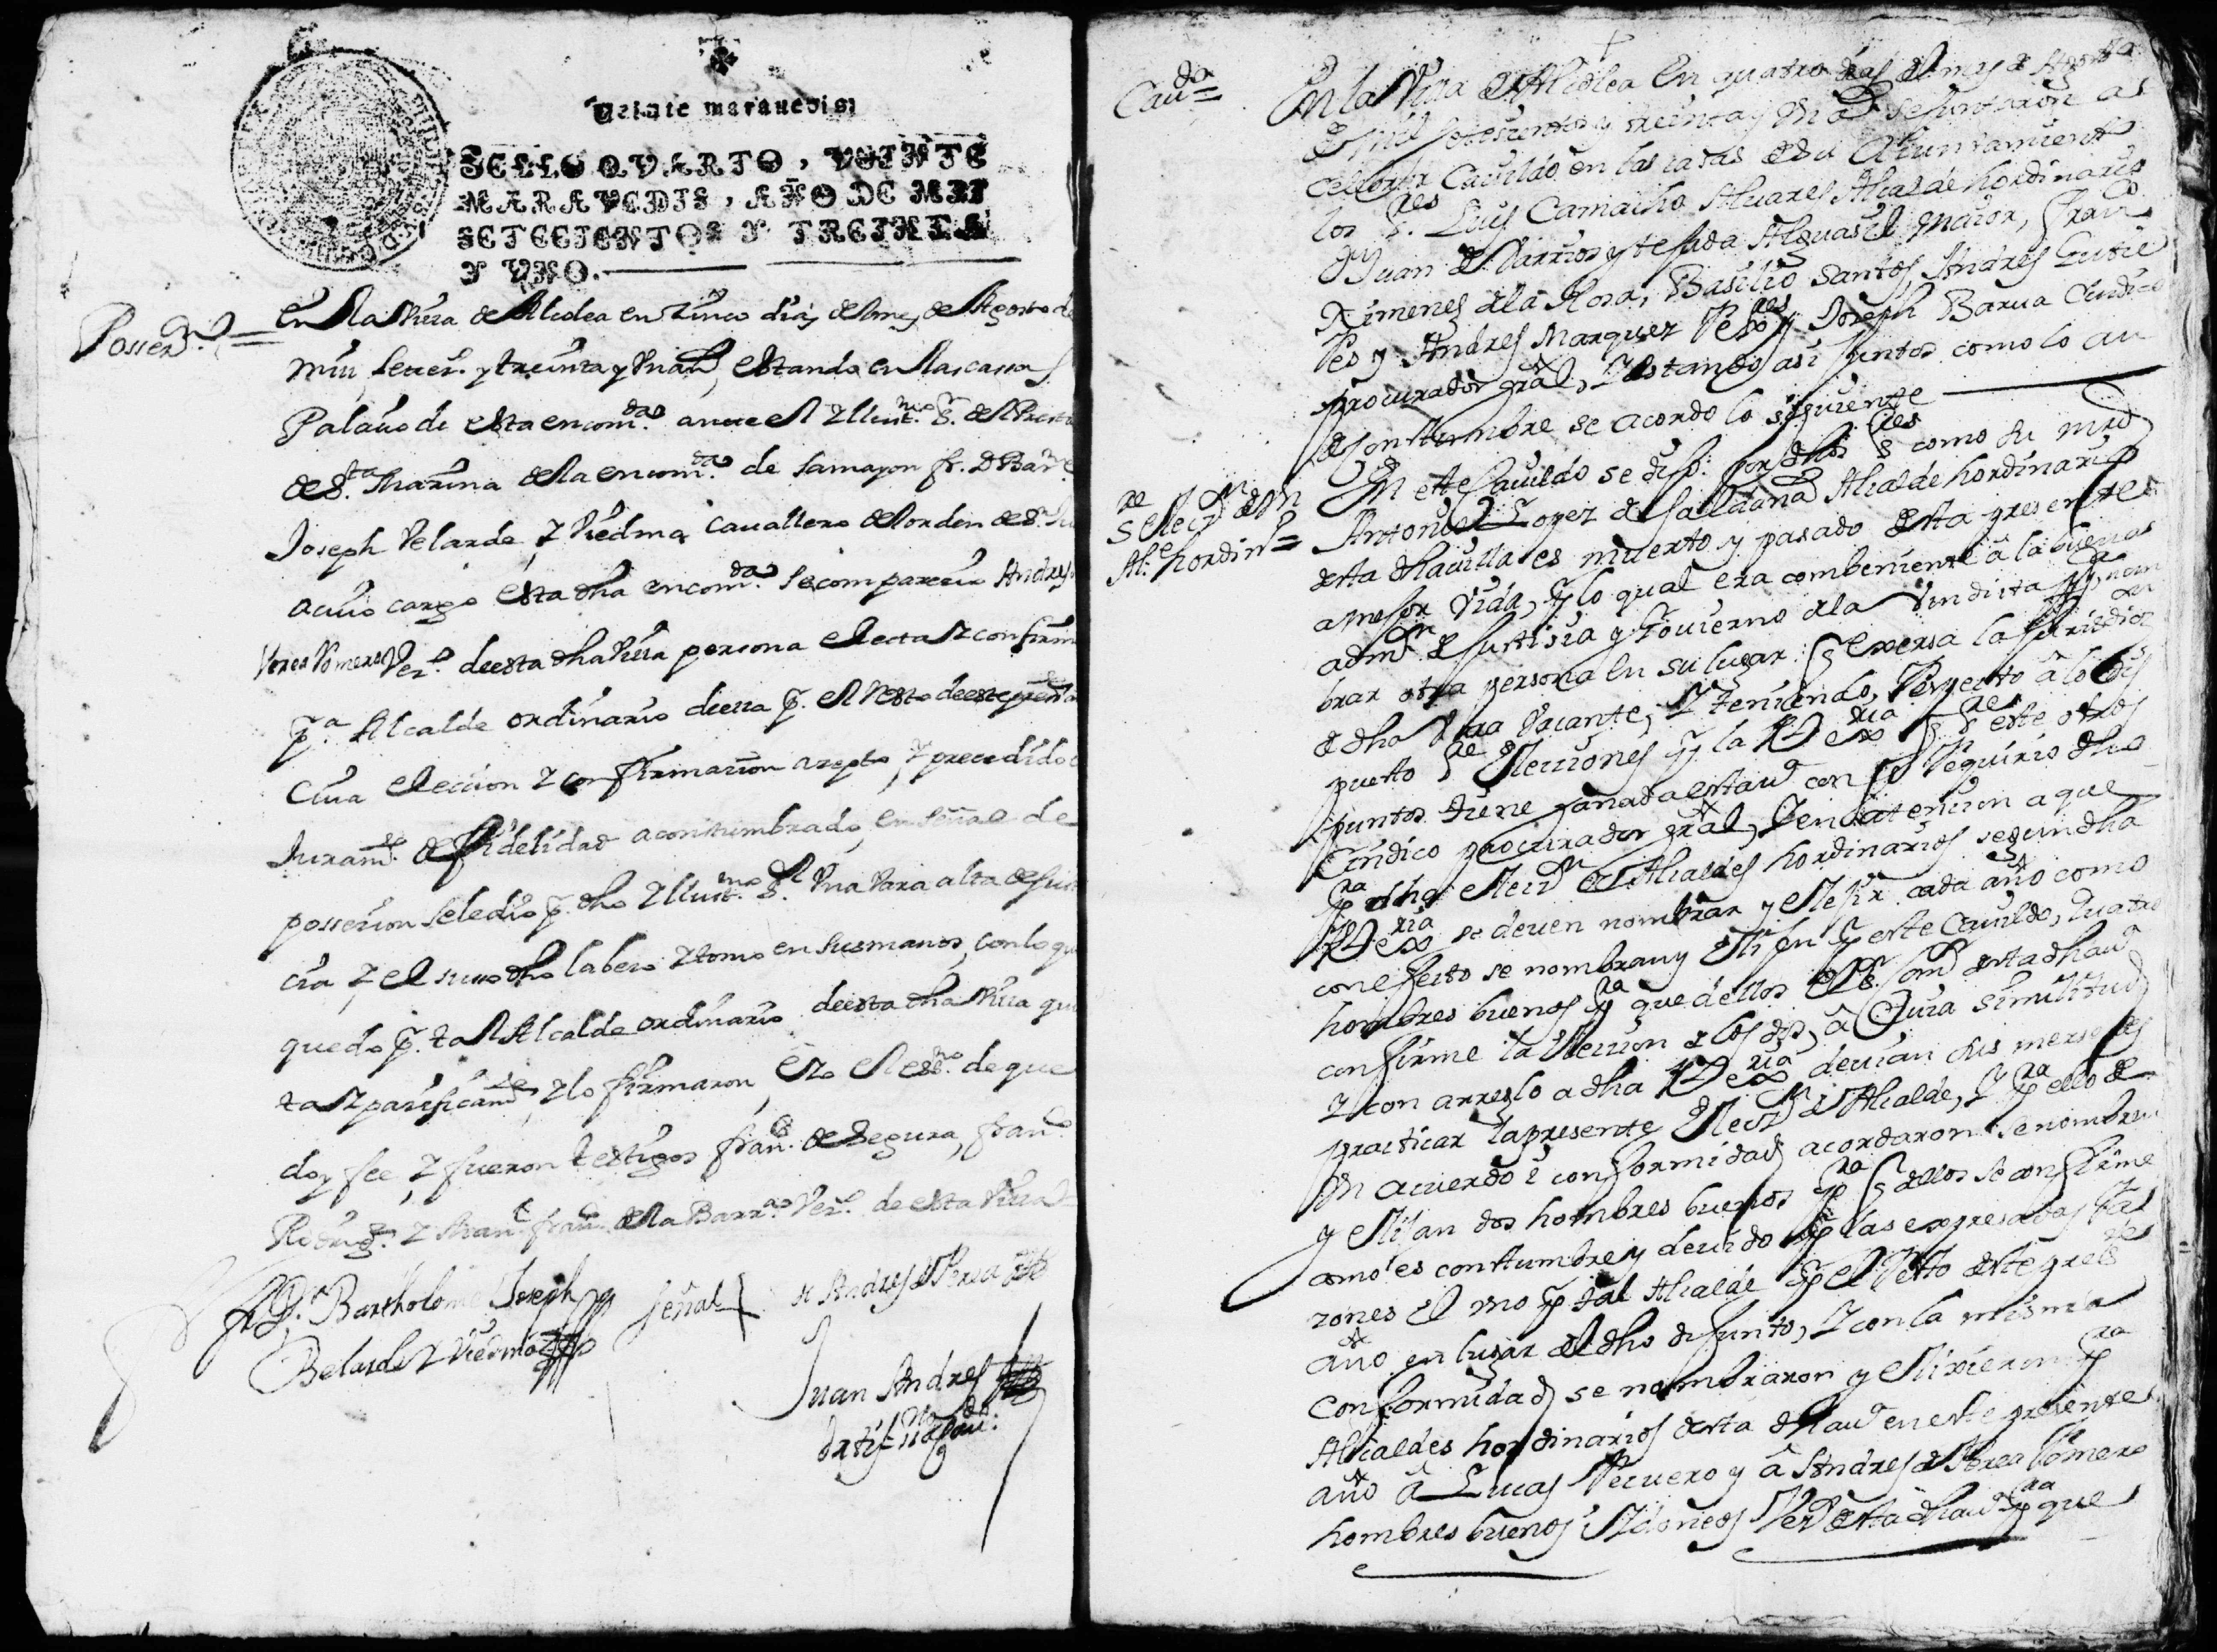 Veinte maravedis
SELLO QVARTO, VEINTE
MARAVEDIS, AÑO DE MIL
SETECIENTOS Y TREINTA
Y UNO.
Possen.
En la Villa de Alcolea en Zinco dias del mes de Agosto de
mill setez.s y treinta y un a.s estando en las casas
Palacio de esta encom.da ante el Illust.mo S.r
de S.ta Marina de la encom.da de Samayon fr. D Bar.e
Joseph Velarde, y Viedma Cavallero del orden de S.n
a cuio cargo esta dha encom.da se comparecio Andres
Romero Vez.o de esta dha Villa persona electa y confirm
p.a Alcalde ordinario de ella p.r el resto de este
Cuia eleccion y confirmacion azepto, y precedido
Juram.to de fidelidad acostumbrado, en señal de
possesion se le dio p.r dho Illust.mo S.r Una Vara alta de Justi
cia, y el suso dho la beso y tomo en sus manos, con lo que
quedo p.r tal Alcalde ordinario de esta dha Villa
ta y pacificam.te, y lo firmaron, e yo el ess.no de que
doy fee, y fueron testigos fran.co de Segura, fran.co
Rodrig.z y fran.co de la Barr.a Vez.s de esta Villa
fr. D.r Bartholome Joseph
Belarde y Viedma
señal
de Andres de Perea
Juan Andres
Cav.do
En la Villa de Alcolea en quatro dias del mes de Agosto
de mil setesientos y treinta y un a.s se juntaron a
celebrar Cavildo en las casas de su Aiuntamiento
los S.res Luis Camacho Alvares Alcalde hordinario
Juan de Barrios y tejada Alguasil maior, Fran.co
Ximenes de la Rosa, Basilio Santos, Andres Gutie
res y Andres Marquez Re.res y Joseph Barva Cindico
procurador gral, y estando asi juntos como lo an
de constumbre se acordo lo siguiente
S.re Elecz.n de un
Al.e hordin.o =
En este Cavildo se dijo por dhos S.res como su mrd
Antonio Lopez de Saldaña Alcalde hordinario
desta dha villa es muerto y pasado desta presente
a mejor vida, y lo qual era combeniente a la buena
adm.on de Justisia y Govierno de la Vindicta p.ca nom
brar otra persona en su lugar q exersa la Jurisdicion
de dha Vara Vacante, y teniendo respecto a lo dis
puesto s.re Elecciones p.r la Rex.ria q s.re este y otros
puntos tiene ganada esta v.a con su requirio dho
Cindico procurador gral, y en atencion a que
p.ra dha elecz.n de Alcaldes hordinarios segun dha
Rex.ria se deven nombrar y elejir cada año como
con efecto se nombran y elijen p.r este Cavildo, quatro
hombres buenos p.ra que dellos el S.r Com.r desta dha v.a
confirme la eleccion de los dos, a Cuia similitud
y con arreglo a dha Rex.ria devian sus mersedes
practicar la presente Elecz.n de Alcalde, y p.ra ello de
un acuerdo y conformidad acordaron se nombren
y elijan dos hombres buenos p.ra q dellos se confirme
como es constumbre y devido p.r las expresadas Ra
zones el uno p.r tal Alcalde p.r el resto deste pres.te
año en lugar del dho difunto, y con la misma
conformidad se nombraron y elixieron p.ra
Alcaldes hordinarios desta dha v.a en este presente
año a Lucas Recuero y a Andres de Perea Romero
hombres buenos idoneos Vez.s desta dha v.a p.ra que